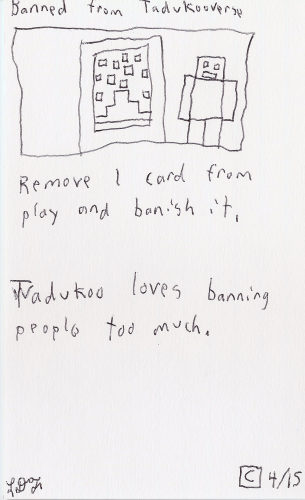 Banned from Tadukooverse
Remove 1 card from
play and banish it.
Tadukoo loves banning
people too much.
C 4/15